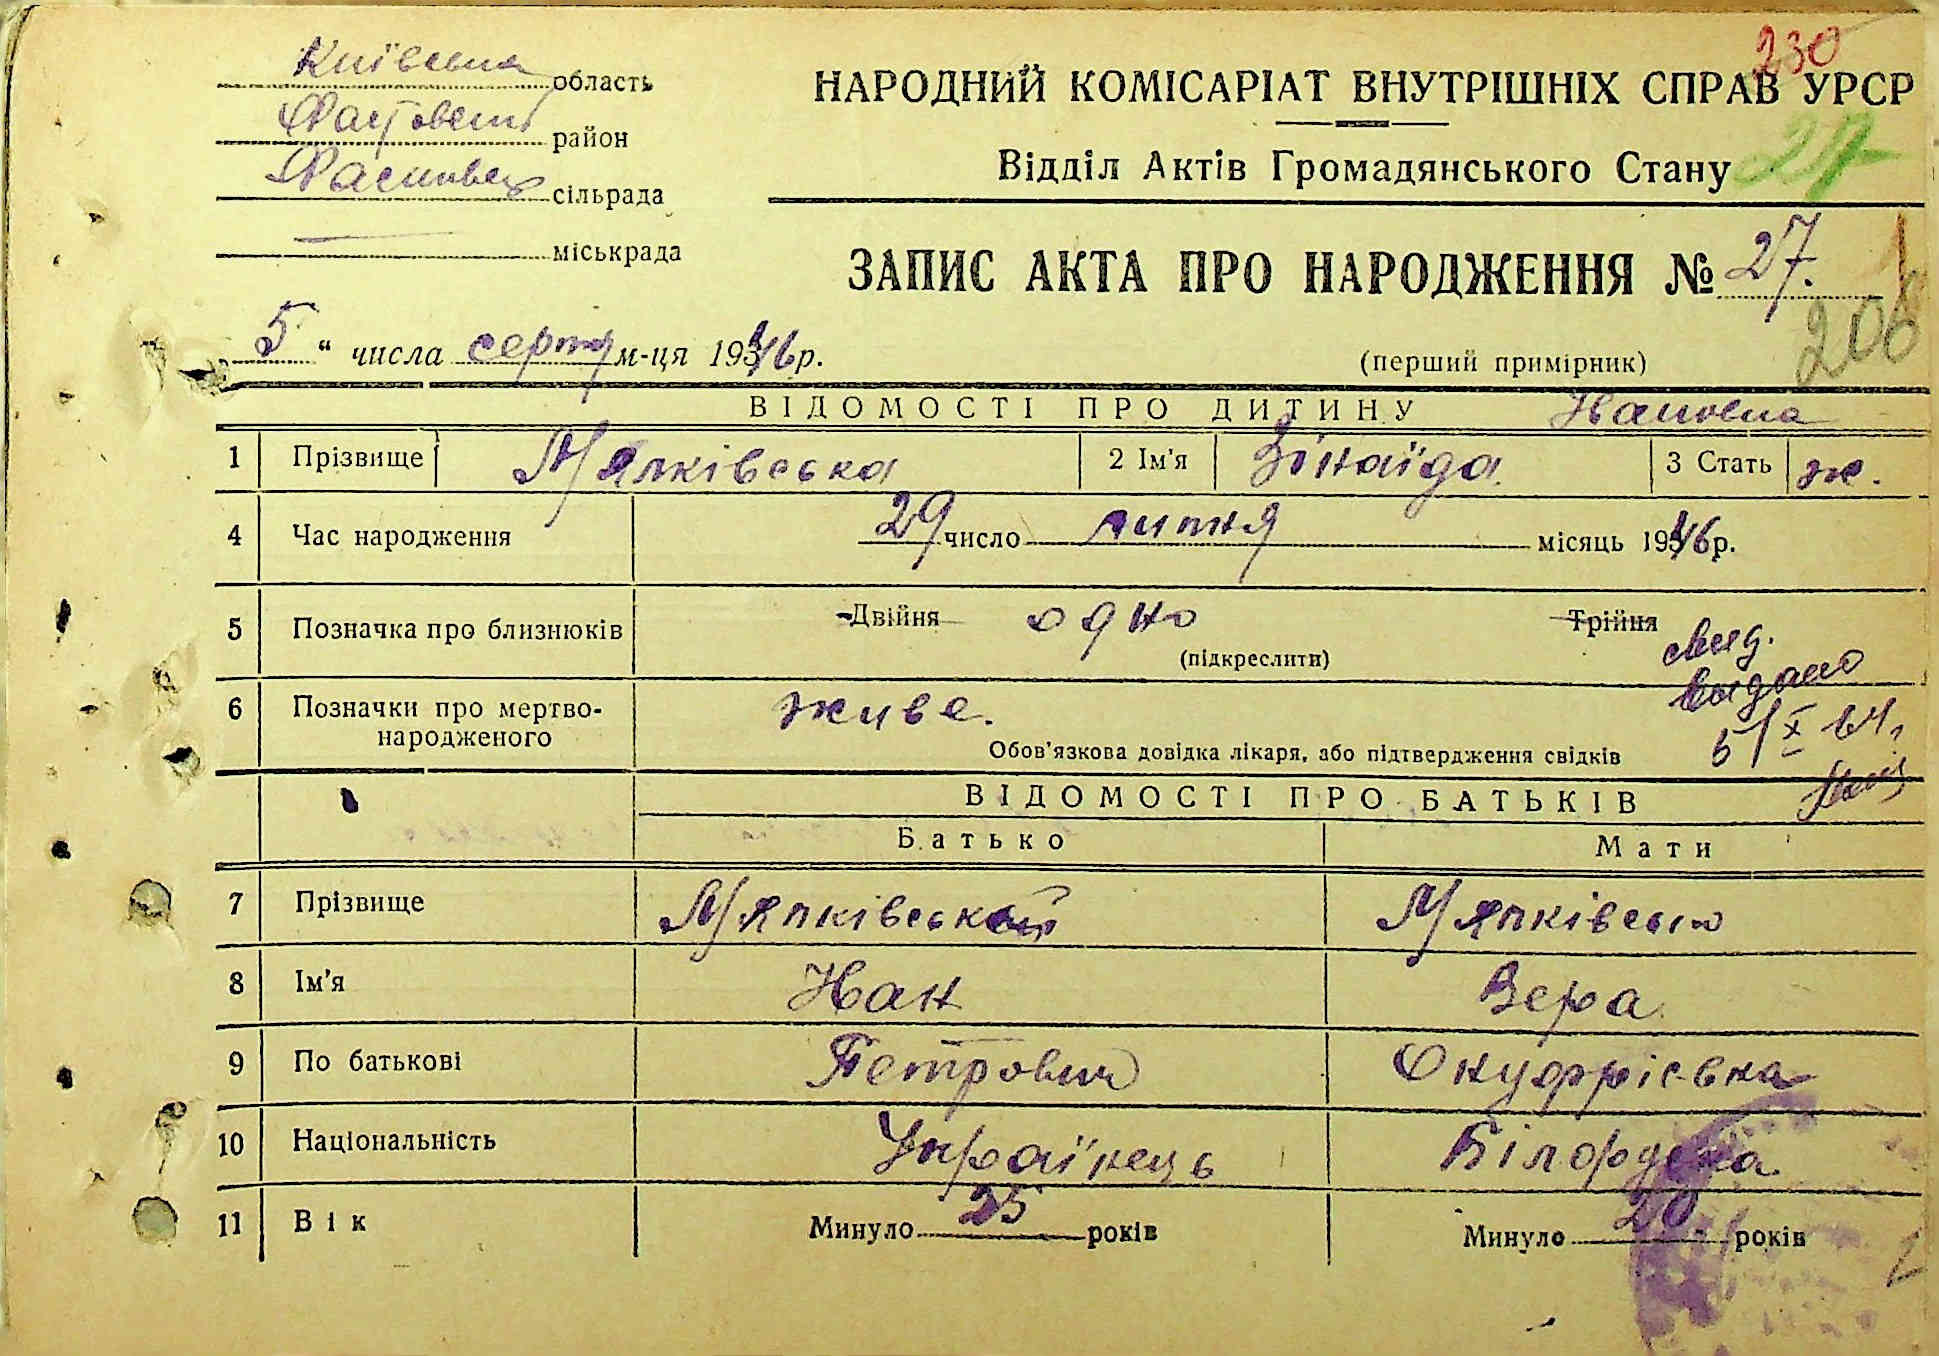 230
Київська область
НАРОДНИЙ КОМІСАРІАТ ВНУТРІШНІХ СПРАВ УРСР
Фастовский район
27
Відділ Актів Громадянського Стану
сільрада
міськрада
ЗАПИС АКТА ПРО НАРОДЖЕННЯ № 27.
206
5 “ числа серпня м-ця 1946 р.
(перший примірник)
ВІДОМОСТІ ПРО ДИТИНУ Івановна
1 Прізвище Мяпківська 2 Ім'я Зінаїда 3 Стать ж.
4 Час народження 29 число липня місяць 1946 р.
5 Позначка про близнюків Двійня одно Трійня
(підкреслити)
выдано
6 Позначки про мертво-
народженого живе.
5/X 64.
Обов'язкова довідка лікаря, або підтвердження свідків
ВІДОМОСТІ ПРО БАТЬКІВ
Батько Мати
7 Прізвище Мяпківський Мяпківська
8 Ім'я Іван Вера
9 По батькові Петрович Онуфріевна
10 Національність Українець Білоруска
11 Вік Минуло 25 років Минуло 20 років